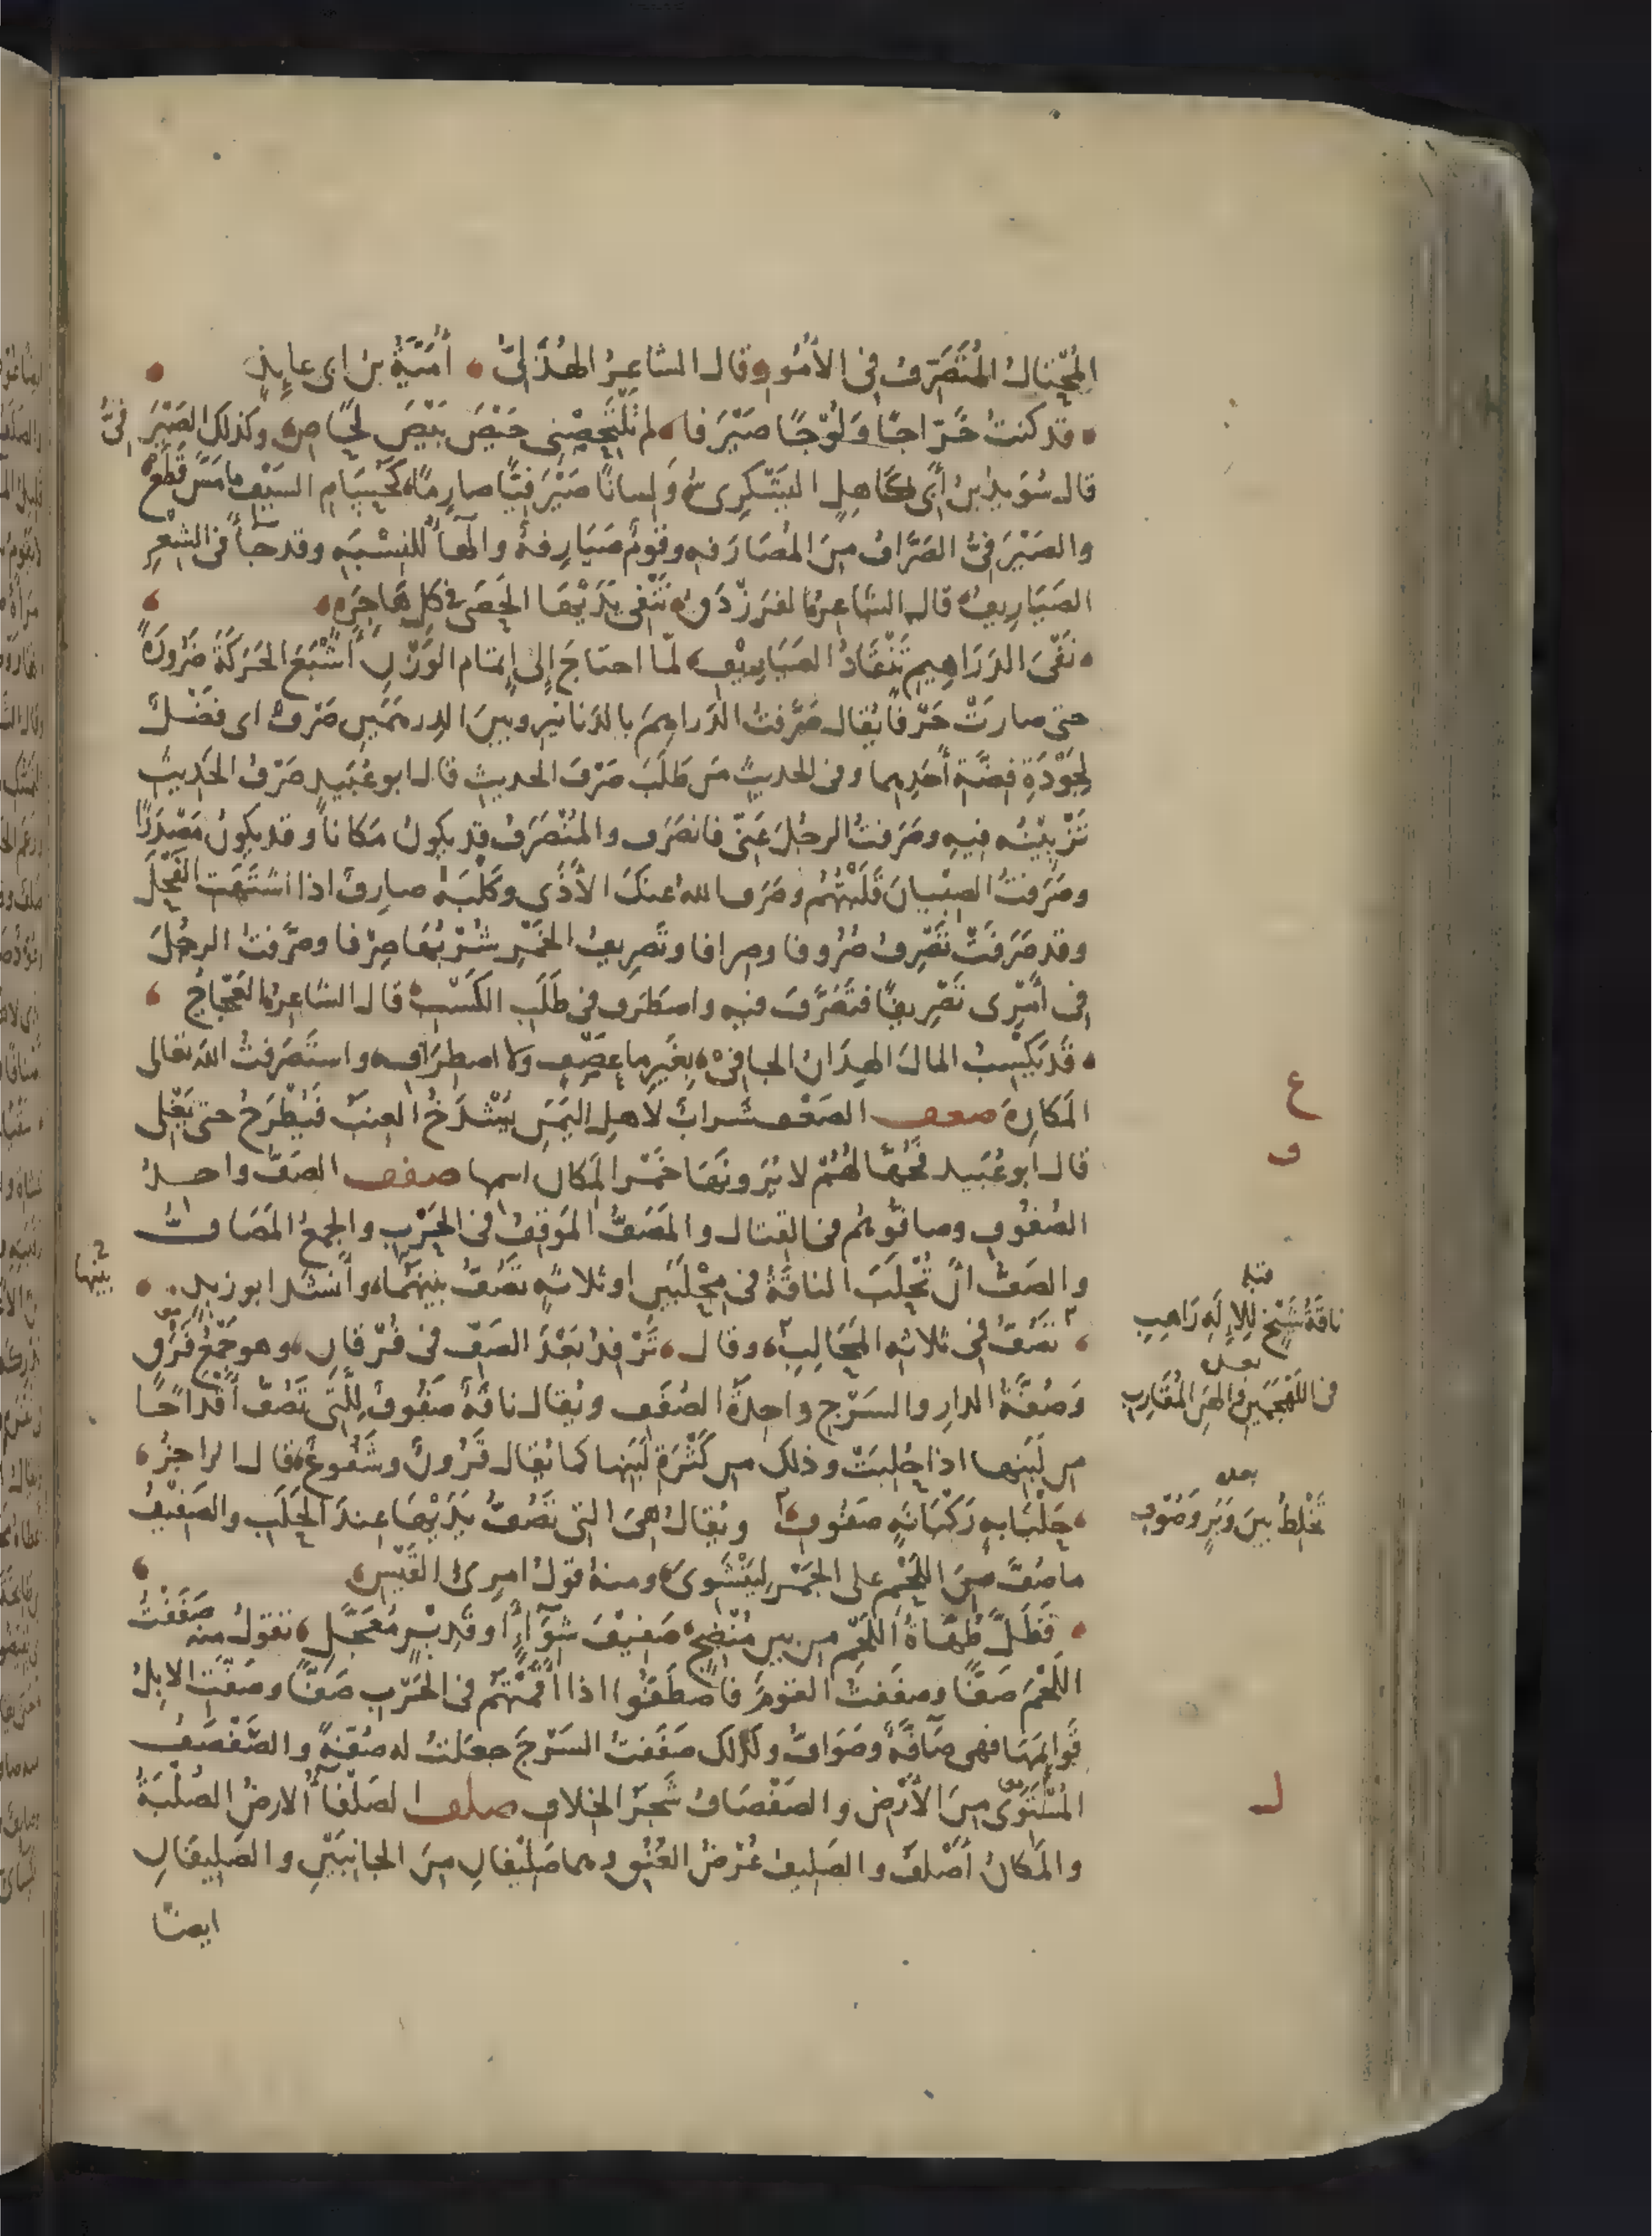 المُحْتالُ المُتَصَرِّفُ فى الأُمُورِ وقال الشاعِرُ الهُذَلِىُّ أُمَيَّةُ بنُ ابى عايِذٍ
قد كنتُ خَرّاجًا وَلُوْجًا صَيْرَفا لم تَلْتَحِصْنِى حَيْصَ بَيْصَ لَحَاصِ وكذلك الصَيْرَفىُّ
قال سُوَيدُ بنُ أَبى كَاهِلٍ اليَشْكُرِى وَلِسانًا صَيْرَفِيًّا صارِمًا كَحُسَامِ السَيْفِ مامَسَّ قَطَعْ
والصَيْرَفىُّ الصَرَّافُ مِنَ المُصَارَفهِ وقَومٌ صَيَارِفهُ والهآءُ للنِسْبَهِ وقد جآءَ فى الشِعْرِ
الصَيَارِيفُ قال الشاعِرُ الفَرَزْدَقُ تَنْفِى يَدَيْهَا الحَصَى فى كلِ هَاجِرَهٍ
نَفْىَ الدَرَاهِيمِ تَنْقَادُ الصَيَارِيْفِ لَمّا احتاجَ إلى إِتمَامِ الوَزْنِ أَشْبَعَ الحَرَكَةَ ضَرُورَةً
حتى صارَتْ حَرْفًا يُقال صَرَّفتُ الدَراهِمَ بالدَنانيرِ وبينَ الدِرهَمَيْنِ صَرْفٌ اى فَضْلٌ
لِجَوْدَةِ فِضَّةِ أَحَدِهِما وفى الحديثِ مَن طَلَبَ صَرْفَ الحديثِ قال ابو عُبَيدٍ صَرْفُ الحَدِيثِ
تَزْيِيْنُه فِيهِ وصَرَفتُ الرجُلَ عَنّى فانصَرَف والمُنْصَرَفُ قد يكونُ مَكانًا وقد يكونُ مَصْدَرًا
وصَرَفتُ الصِبْيانَ قَلَبْتُهُمْ وصَرَف اللهُ عنكَ الأَذَى وكَلْبَةٌ صارِفٌ اذا اشتَهَت الفَحْلَ
وقد صَرَفَتْ تَصْرِفُ صُرُوفا وصِرافا وتَصرِيفُ الخَمْرِ شُرْبُهَا صِرْفا وصَرَّفتُ الرجُلَ
فى أَمْرِى تَصْرِيفًا فتَصَرَّفَ فيهِ واصطَرَف فى طَلَبِ الكَسْبِ قال الشاعِرُ العَجّاجُ
قَد يَكْسِبُ المالَ الهِدَانُ الجافِىْ بِغَيرِ ما عَصْفٍ ولا اصطِرَافِ واستَصرَفتُ اللهَ تعالى
المَكارِهَ صعف الصَعْف شرابٌ لأَهلِ اليَمَنِ يُشْدَخُ العِنَبُ فَيُطْرَحُ حتى يَغْلِى
قال ابو عُبَيد فجُهَّالُهُمْ لا يَرَونَهَا خَمْرا لمَكانِ اسمِها صفف الصَفّ واحدُ
الصُفُوفِ وصافُّوهُم فى القِتال والمَصَفُّ المَوقِفُ فى الحَرْبِ والجمعُ المَصَافُّ
والصَفُّ أنْ تُحْلَبَ الناقَةُ فى مِحْلَبَينِ او ثلاثهٍ تصُفُّ بينهُمَا وأَنشَدَ ابو زيد
بينها
تصُفُّ فى ثلاثهِ المَحَالِبِ وقال تَرْفِدُ بَعْدَ الصَفِّ فى فُرْقَانِ وهو جَمْعُ فَرْقٍ
وَصُفَّةُ الدارِ والسَرْجِ واحِدَةُ الصُفَفِ ويُقال ناقَةٌ صَفُوفٌ لِلَّتِى تَصُفّ أَقْدَاحًا
مِن لَبَنِها اذا حُلِبَتْ وذلك مِن كَثْرَةِ لَبَنِها كما يُقال قَرُونٌ وشَفُوعٌ قال الراجِزُ
حَلْبَانِهِ رَكْبَانهٍ صَفُوفِ ويُقالُ هِىَ التِى تَصُفُّ يَدَيْهَا عِندَ الحَلَبِ والصَفِيْفُ
ما صُفَّ مِنَ اللَحْمِ على الجَمْرِ لِيَنْشَوِىَ ومنهُ قولُ امرِئ القَيْسِ
فَظَلَّ طُهَاةُ اللَحْمِ مِن بينِ مُنْضِجٍ صَفِيفَ شِوَآءٍ او قَدِيْرٍ مُعَجَّلِ تقولُ منه صَفَفْتُ
اللَحْمَ صَفًّا وصَفَفتُ القومَ فاصطَفُّوا اذا أَقَمْتَهُمْ فى الحَرْبِ صَفًّا وصَفَّتِ الابِلُ
قَوائِمَهَا فهى صآفَّةٌ وصَوَافُّ وكذلك صَفَفتُ السَرْجَ جعَلتُ له صُفّةً والصَفْصَفُ
المُسْتَوِى مِنَ الأَرْضِ والصَفْصَافُ شَجَرُ الخِلافِ صلف الصَلْفَآءُ الارضُ الصُلْبَةُ
والمَكانُ أَصْلَفُ والصَلِيفُ عُرْضُ العُنُقِ وهما صَلِيْفانِ مِنَ الجانِبَيْنِ والصَلِيفَانِ
ايضًا
ع
ف
قبله
ناقَةُ شَيْخٍ لِلإِلَهِ رَاهِبِ
بعده
فى اللَهْجَمَيْنِ والهَنِ المُقَارِبِ
بعده
تَخْلِطُ بينَ وَبَرٍ وَصُوفِ
ل